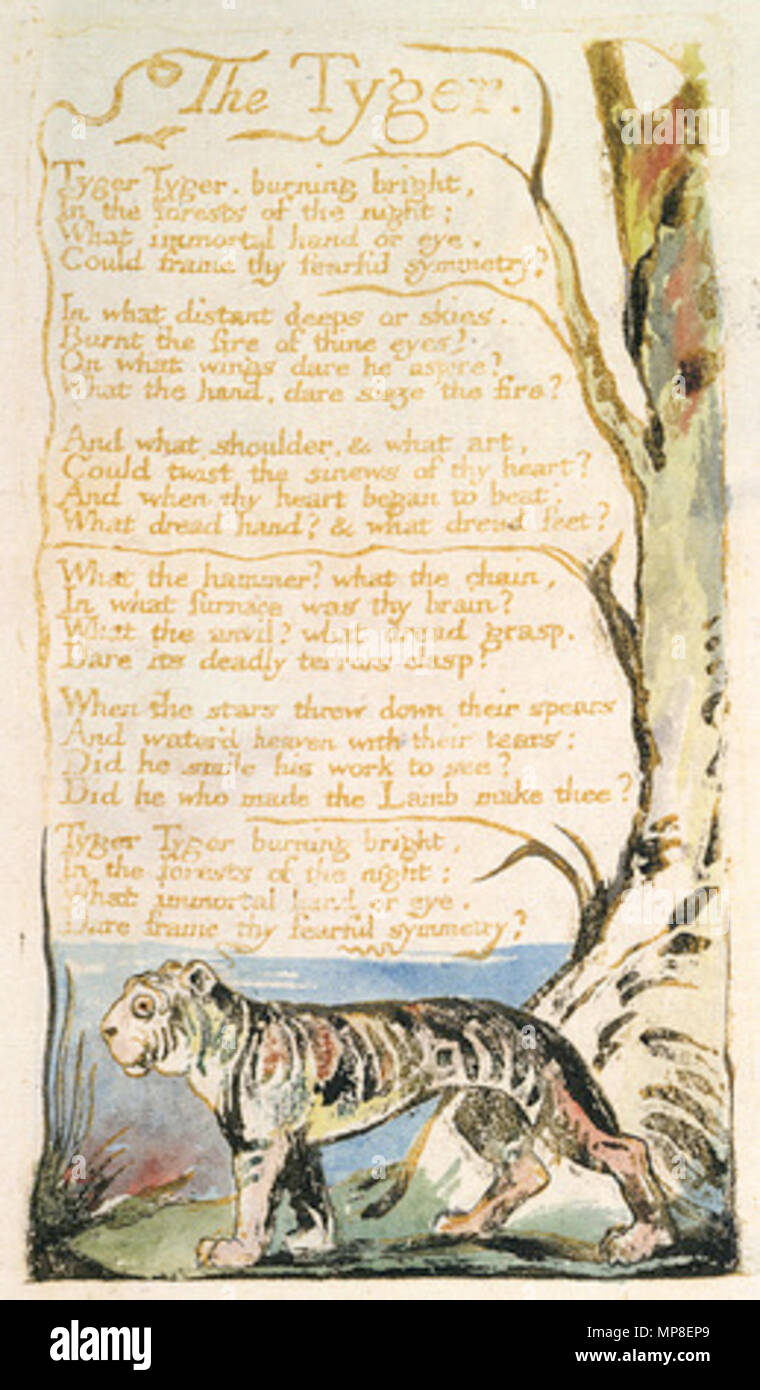 The Tyger.
Tyger Tyger. burning bright,
In the forests of the night;
What immortal hand or eye.
Could frame thy fearful symmetry?
In what distant deeps or skies.
Burnt the fire of thine eyes?
On what wings dare he aspire?
What the hand, dare sieze the fire?
And what shoulder, & what art,
Could twist the sinews of thy heart?
And when thy heart began to beat,
What dread hand? & what dread feet?
What the hammer? what the chain,
In what furnace was thy brain?
What the anvil? what dread grasp.
Dare its deadly terrors clasp?
When the stars threw down their spears
And water'd heaven with their tears:
Did he smile his work to see?
Did he who made the Lamb make thee?
Tyger Tyger burning bright,
In the forests of the night:
What immortal hand or eye.
Dare frame thy fearful symmetry?
alamy
alamy
alamy
Image ID: MP8EP9
www.alamy.com